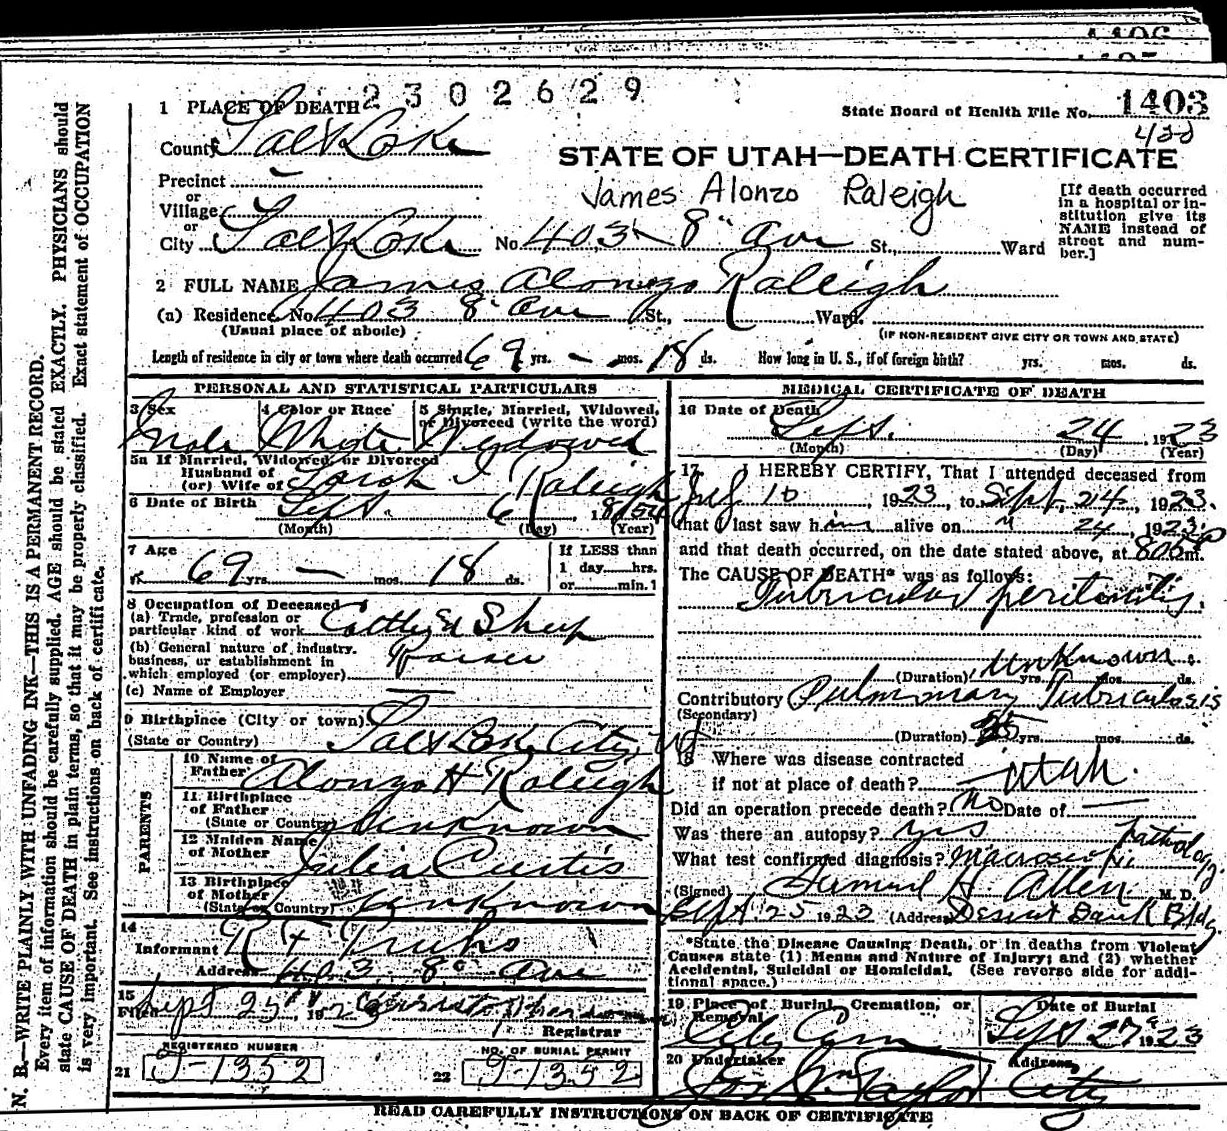 1406
1405
2302629
1 PLACE OF DEATH
State Board of Health File No. 1403
County Salt Lake
STATE OF UTAH—DEATH CERTIFICATE
Precinct
James Alonzo Raleigh
or
Village
or
City Salt Lake No. 403 8" Ave St., Ward
[If death occurred in a hospital or institution give its NAME instead of street and number.]
2 FULL NAME James Alonzo Raleigh
(a) Residence No. 403 8" Ave St., Ward.
(Usual place of abode)
(IF NON-RESIDENT GIVE CITY OR TOWN AND STATE)
Length of residence in city or town where death occurred 69 yrs. — mos. 18 ds. How long in U. S., if of foreign birth? yrs. mos. ds.
N. B.—WRITE PLAINLY WITH UNFADING INK—THIS IS A PERMANENT RECORD.
Every item of information should be carefully supplied. AGE should be stated EXACTLY. PHYSICIANS should
state CAUSE OF DEATH in plain terms, so that it may be properly classified. Exact statement of OCCUPATION
is very important. See instructions on back of certificate.
PERSONAL AND STATISTICAL PARTICULARS
3 Sex
4 Color or Race
5 Single, Married, Widowed,
or Divorced (write the word)
Male White Widowed
5a If Married, Widowed, or Divorced
Husband of
(or) Wife of Sarah Raleigh
6 Date of Birth Sept. 6, 1854
(Month) (Day) (Year)
7 Age
69 yrs. — mos. 18 ds.
If LESS than
1 day hrs.
or min.
8 Occupation of Deceased
(a) Trade, profession or
particular kind of work Cattle & Sheep
(b) General nature of industry,
business, or establishment in
which employed (or employer) Raiser
(c) Name of Employer —
9 Birthplace (City or town)
(State or Country) Salt Lake City, Ut
PARENTS
10 Name of
Father Alonzo H Raleigh
11 Birthplace
of Father
(State or Country) Unknown
12 Maiden Name
of Mother Julia Curtis
13 Birthplace
of Mother
(State or Country) Unknown
14
Informant
Address 403 8" Ave
15
Filed Sept 25" 1923
Registrar
REGISTERED NUMBER
NO. OF BURIAL PERMIT
21 J-1352
22 J-1352
MEDICAL CERTIFICATE OF DEATH
16 Date of Death
Sept. 24, 1923
(Month) (Day) (Year)
17 I HEREBY CERTIFY, That I attended deceased from
10, 1923, to Sept. 24, 1923.
that I last saw him alive on " 24, 1923,
and that death occurred, on the date stated above, at m.
The CAUSE OF DEATH* was as follows:
Tubercular peritonitis
(Duration) Unknown yrs. mos. ds.
Contributory Pulmonary Tuberculosis
(Secondary)
(Duration) yrs. mos. ds.
18 Where was disease contracted
if not at place of death? Utah.
Did an operation precede death? No Date of —
Was there an autopsy? yes
What test confirmed diagnosis? Macroscopic pathology
(Signed) Samuel H Allen M. D.
Sept 25 1923 (Address) Deseret Bank Bldg.
*State the Disease Causing Death, or in deaths from Violent
Causes state (1) Means and Nature of Injury; and (2) whether
Accidental, Suicidal or Homicidal. (See reverse side for additional space.)
19 Place of Burial, Cremation, or
Removal City Cem
Date of Burial
Sept 27" 1923
20 Undertaker
Jos Wm Taylor
Address
City
READ CAREFULLY INSTRUCTIONS ON BACK OF CERTIFICATE